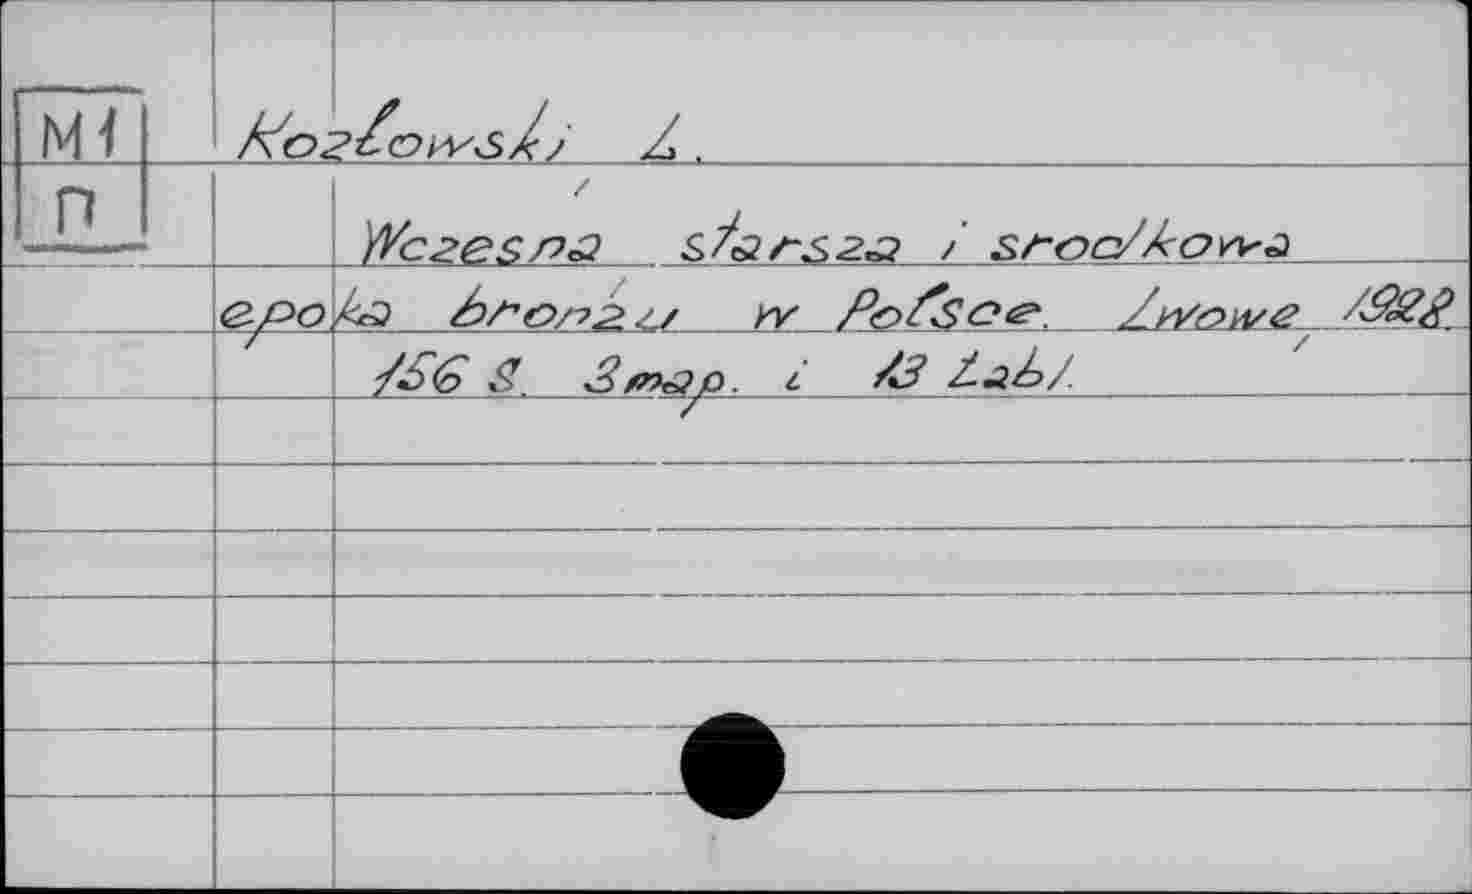 М1
П
Kozłowski L.
Wczesna starsza i srodkowa
epoka bronzu w Polsce. Lwowe, 1928.
156 S. 3 map. i 13 tabl.